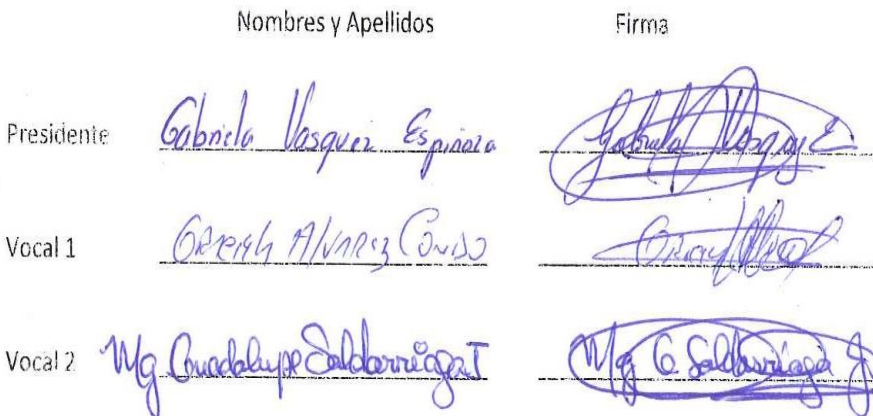 Nombres y Apellidos Firma
Presidente Gabriela Vasquez Espinoza Gabriela Vasquez E
Vocal 1 Alvarez
Vocal 2 Mg Guadalupe Saldarriaga J Mg G Saldarriaga J